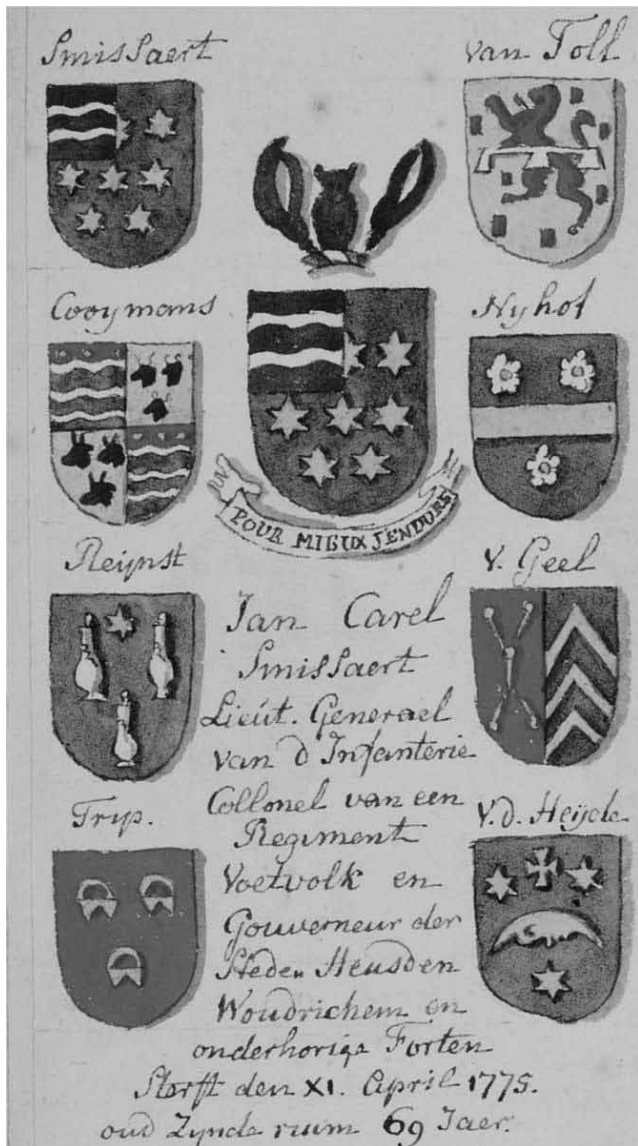 Smissaert
van Toll
Cooymans
Nyhof
POUR MIEUX J'ENDURE
Reijnst
V. Geel
Trip.
V. d. Heijde
Jan Carel
Smissaert
Lieut. Generael
van d Infanterie
Collonel van een
Regiment
Voetvolk en
Gouverneur der
Steden Heusden
Woudrichem en
onderhorige Forten
Sterft den XI. April 1775.
oud Zynde ruim 69 Jaer.